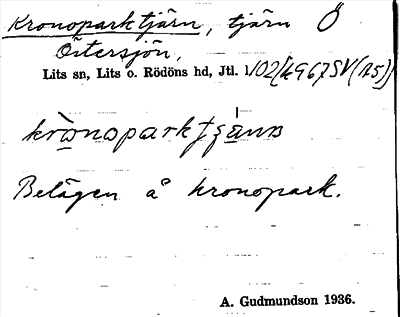 Kronoparktjärn, tjärn Ö
Östersjön,
Lits sn, Lits o. Rödöns hd, Jtl. 1/02[4967SV(A5)]
Belägen å kronopark.
A. Gudmundson 1936.